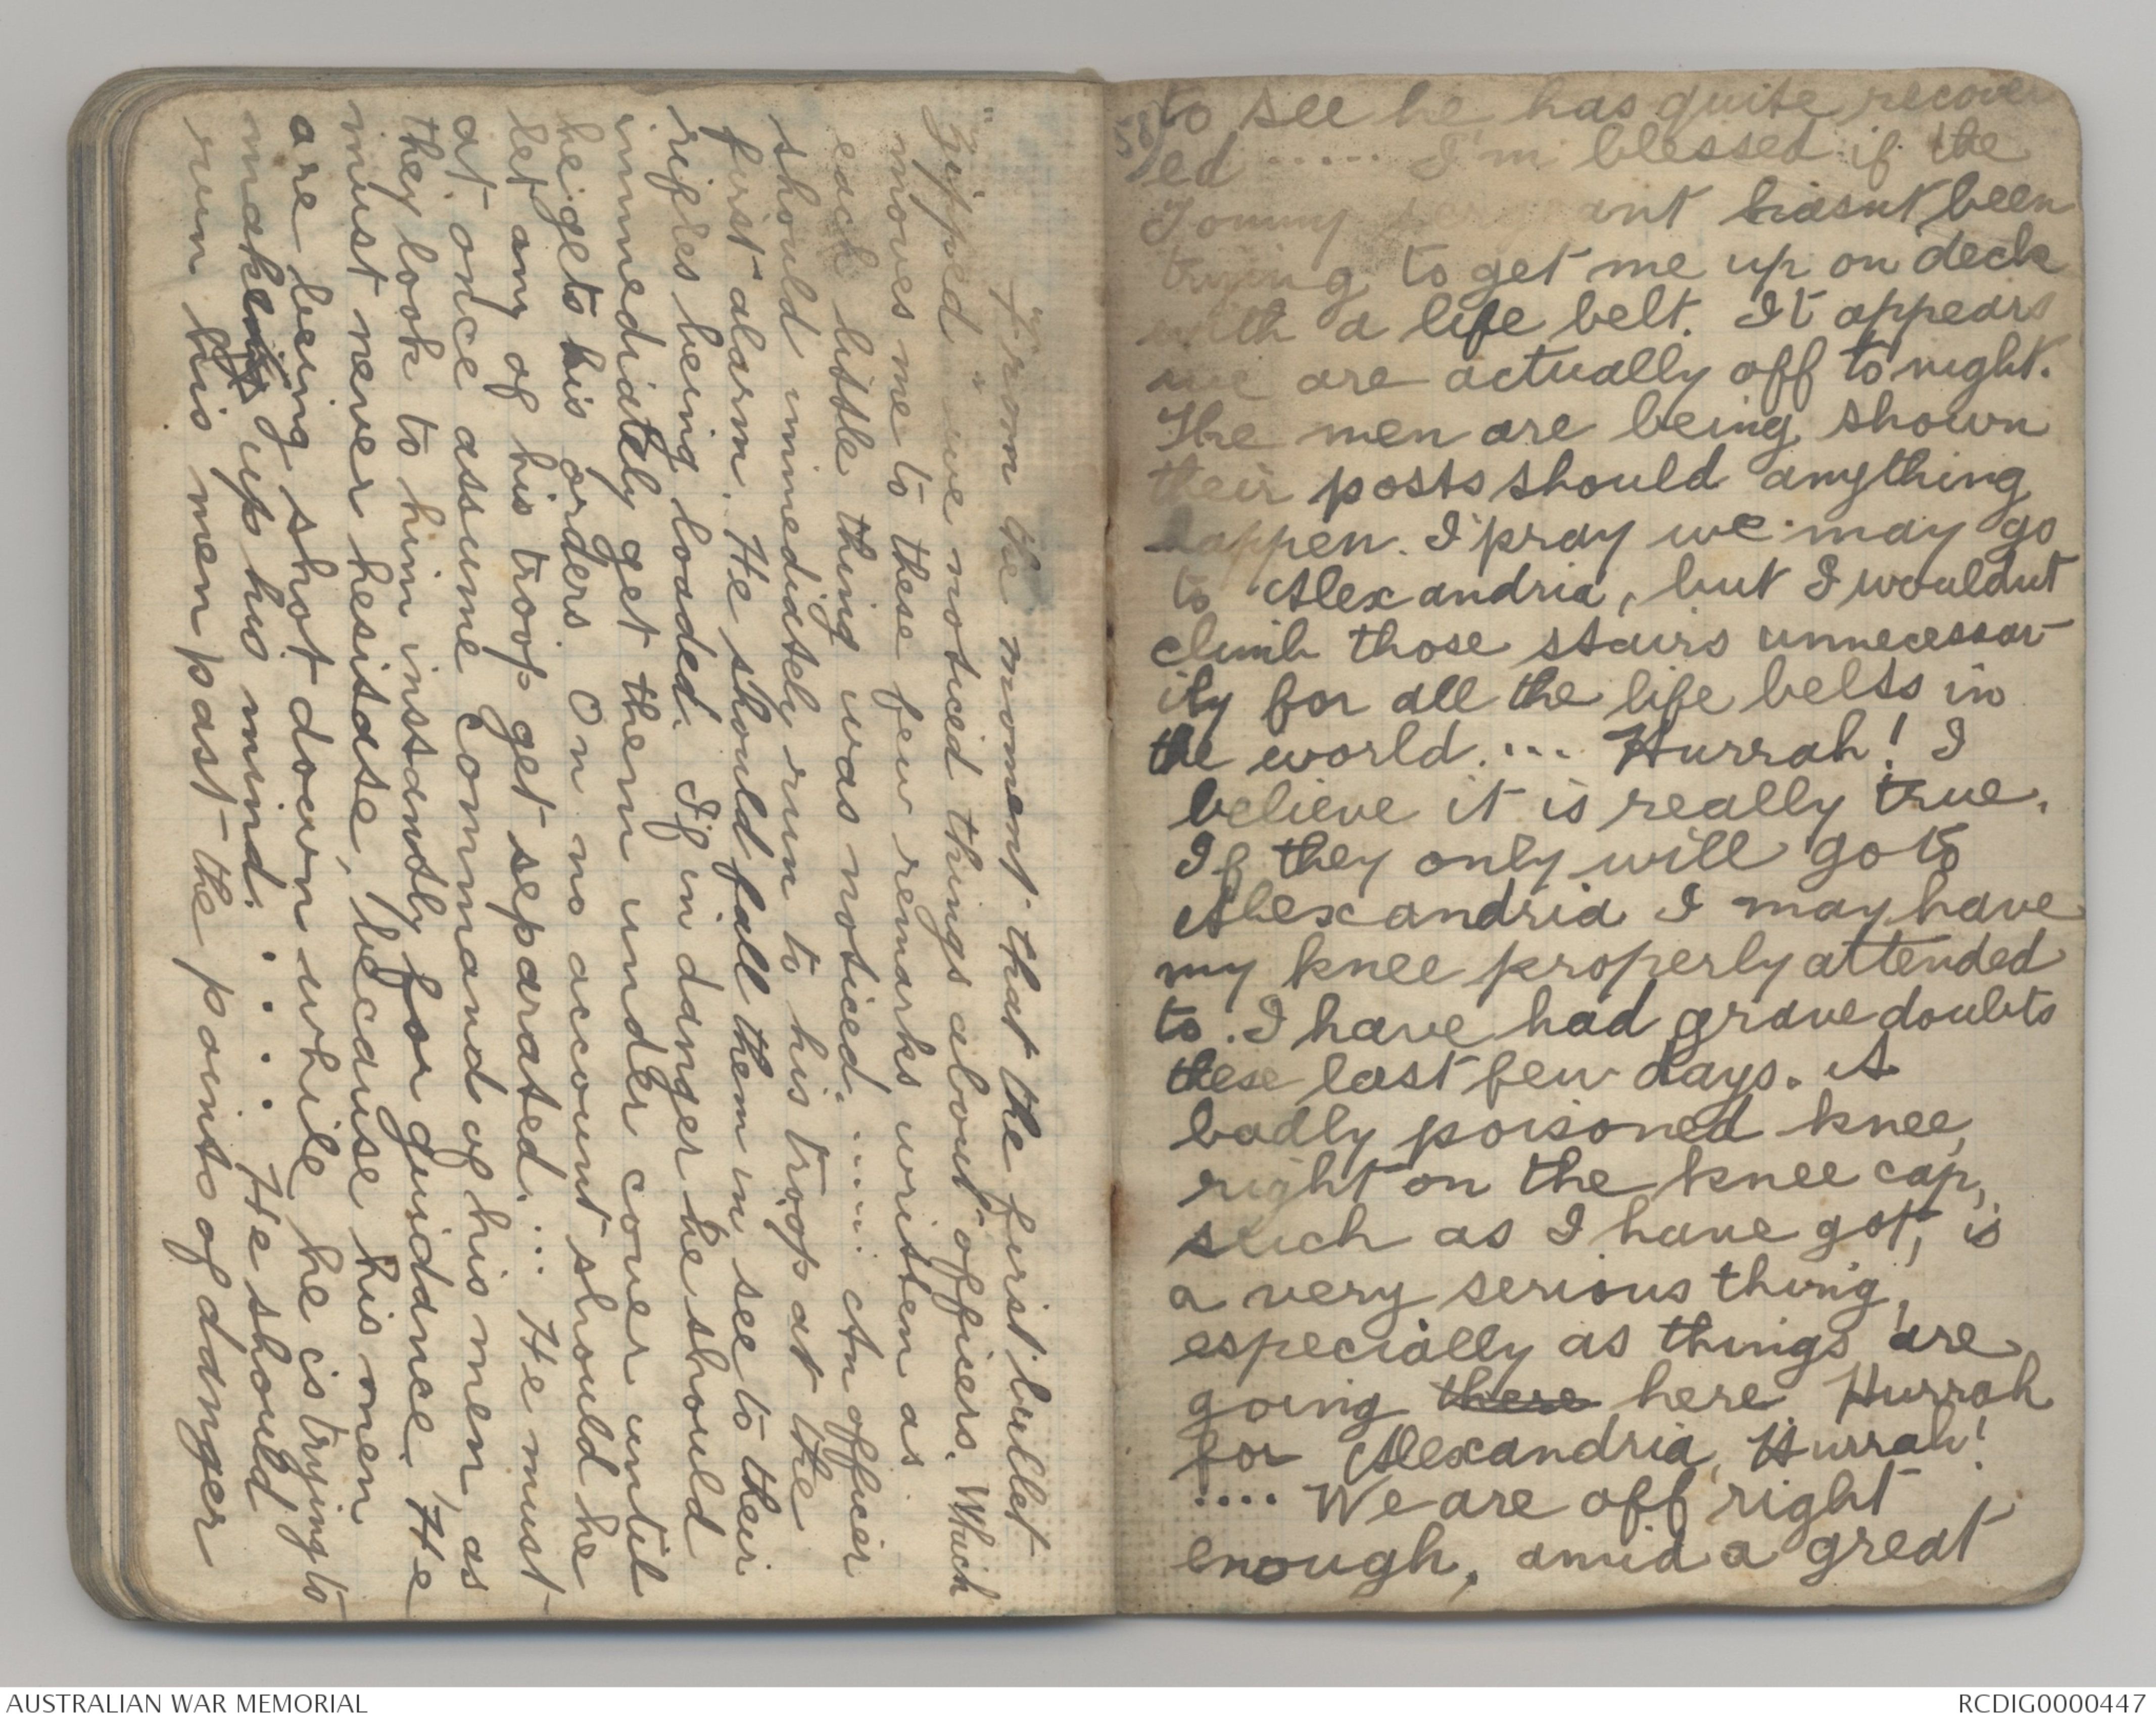 "From the moment that the first bullet
"zipped" we noticed things about officers. Which
moves me to these few remarks written as
each little thing was noticed. ..... An officer
should immediately run to his troop at the
first alarm. He should fall them in see to their
rifles being loaded. If in danger he should
immediately get them under cover until
he gets his orders. On no account should he
let any of his troop get separated. ... He must
at once assume command of his men as
they look to him instantly for guidance. He
must never hesitate, because his men
are being shot down while he is trying to
make up his mind. .... He should
run his men past the points of danger
58)
to see he has quite recover
ed ..... I'm blessed if the
Tommy sergeant hasnt been
trying to get me up on deck
with a life belt. It appears
we are actually off to night.
The men are being shown
their posts should anything
happen. I pray we may go
to Alexandria, but I wouldnt
climb those stairs unnecessar
ily for all the life belts in
the world. ... Hurrah! I
believe it is really true.
If they only will go to
Alexandria I may have
my knee properly attended
to. I have had grave doubts
these last few days. A
badly poisoned knee,
right on the knee cap,
such as I have got, is
a very serious thing,
especially as things are
going there here Hurrah
for Alexandria, Hurrah!
.... We are off right
enough, amid a great
AUSTRALIAN WAR MEMORIAL
RCDIG0000447